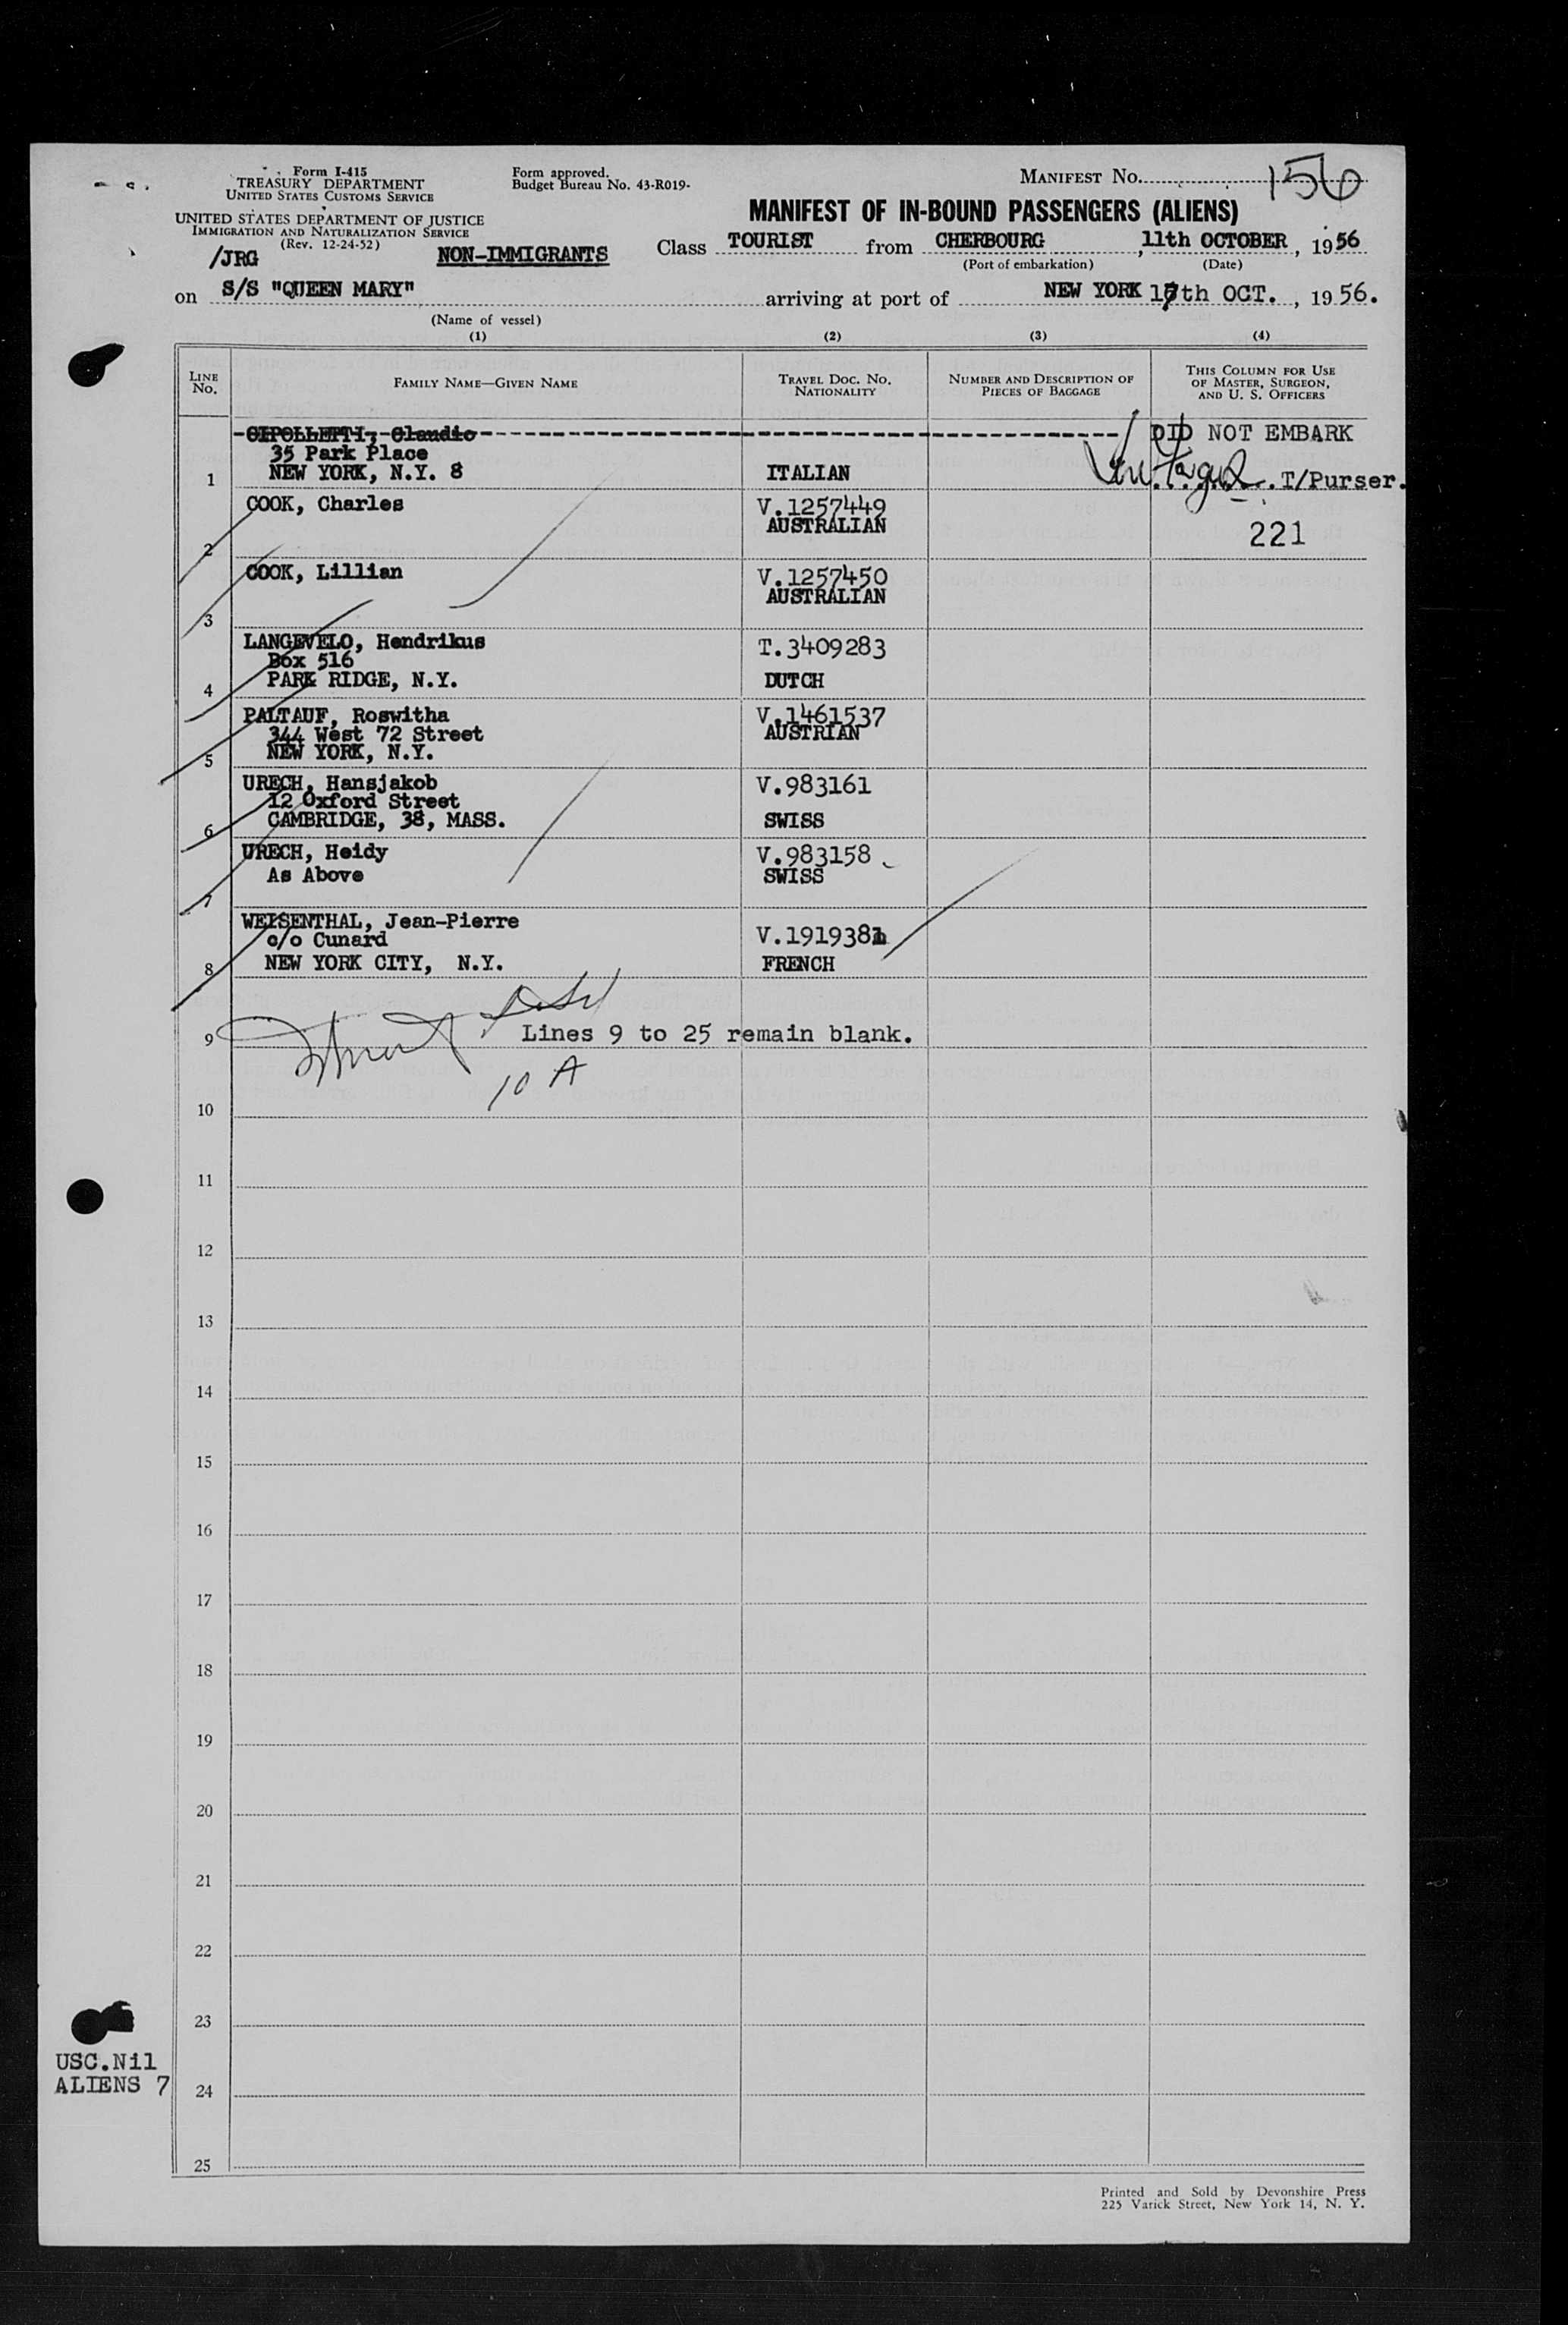 Form I-415
TREASURY DEPARTMENT
UNITED STATES CUSTOMS SERVICE
UNITED STATES DEPARTMENT OF JUSTICE
IMMIGRATION AND NATURALIZATION SERVICE
(Rev. 12-24-52)
Form approved.
Budget Bureau No. 43-R019-
MANIFEST No. 156
MANIFEST OF IN-BOUND PASSENGERS (ALIENS)
/JRG NON-IMMIGRANTS Class TOURIST from CHERBOURG, 11th OCTOBER, 1956
(Port of embarkation) (Date)
on S/S "QUEEN MARY" arriving at port of NEW YORK 17th OCT., 1956.
(Name of vessel)
(1) (2) (3) (4)
LINE No. FAMILY NAME—GIVEN NAME TRAVEL DOC. NO. NATIONALITY NUMBER AND DESCRIPTION OF PIECES OF BAGGAGE THIS COLUMN FOR USE OF MASTER, SURGEON, AND U. S. OFFICERS
-CIPOLLETTI, Claudio- DID NOT EMBARK
35 Park Place
1 NEW YORK, N.Y. 8 ITALIAN T/Purser.
COOK, Charles V.1257449
AUSTRALIAN
2 221
COOK, Lillian V.1257450
AUSTRALIAN
3
LANGEVELO, Hendrikus T.3409283
Box 516
4 PARK RIDGE, N.Y. DUTCH
PALTAUF, Roswitha V.1461537
344 West 72 Street AUSTRIAN
5 NEW YORK, N.Y.
URECH, Hansjakob V.983161
12 Oxford Street
6 CAMBRIDGE, 38, MASS. SWISS
URECH, Heidy V.983158
As Above SWISS
7
WEISENTHAL, Jean-Pierre
c/o Cunard V.1919381
8 NEW YORK CITY, N.Y. FRENCH
9 Lines 9 to 25 remain blank.
10 A
10
11
12
13
14
15
16
17
18
19
20
21
22
23
USC.Nil
ALIENS 7
24
25
Printed and Sold by Devonshire Press
225 Varick Street, New York 14, N. Y.